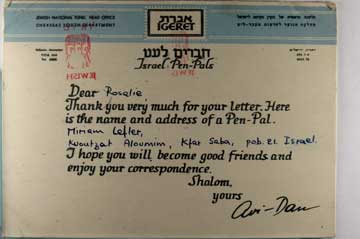 JEWISH NATIONAL FUND, HEAD OFFICE
OVERSEAS YOUTH DEPARTMENT
אגרת
IGERET
חברים לעט
Israel Pen-Pals
Dear Rosalie
Thank you very much for your letter. Here
is the name and address of a Pen-Pal.
Miriam Lefler,
Kwoutzat Aloumim, Kfar Saba, pob. 21. Israel.
I hope you will become good friends and
enjoy your correspondence.
Shalom,
yours
Avi-Dan